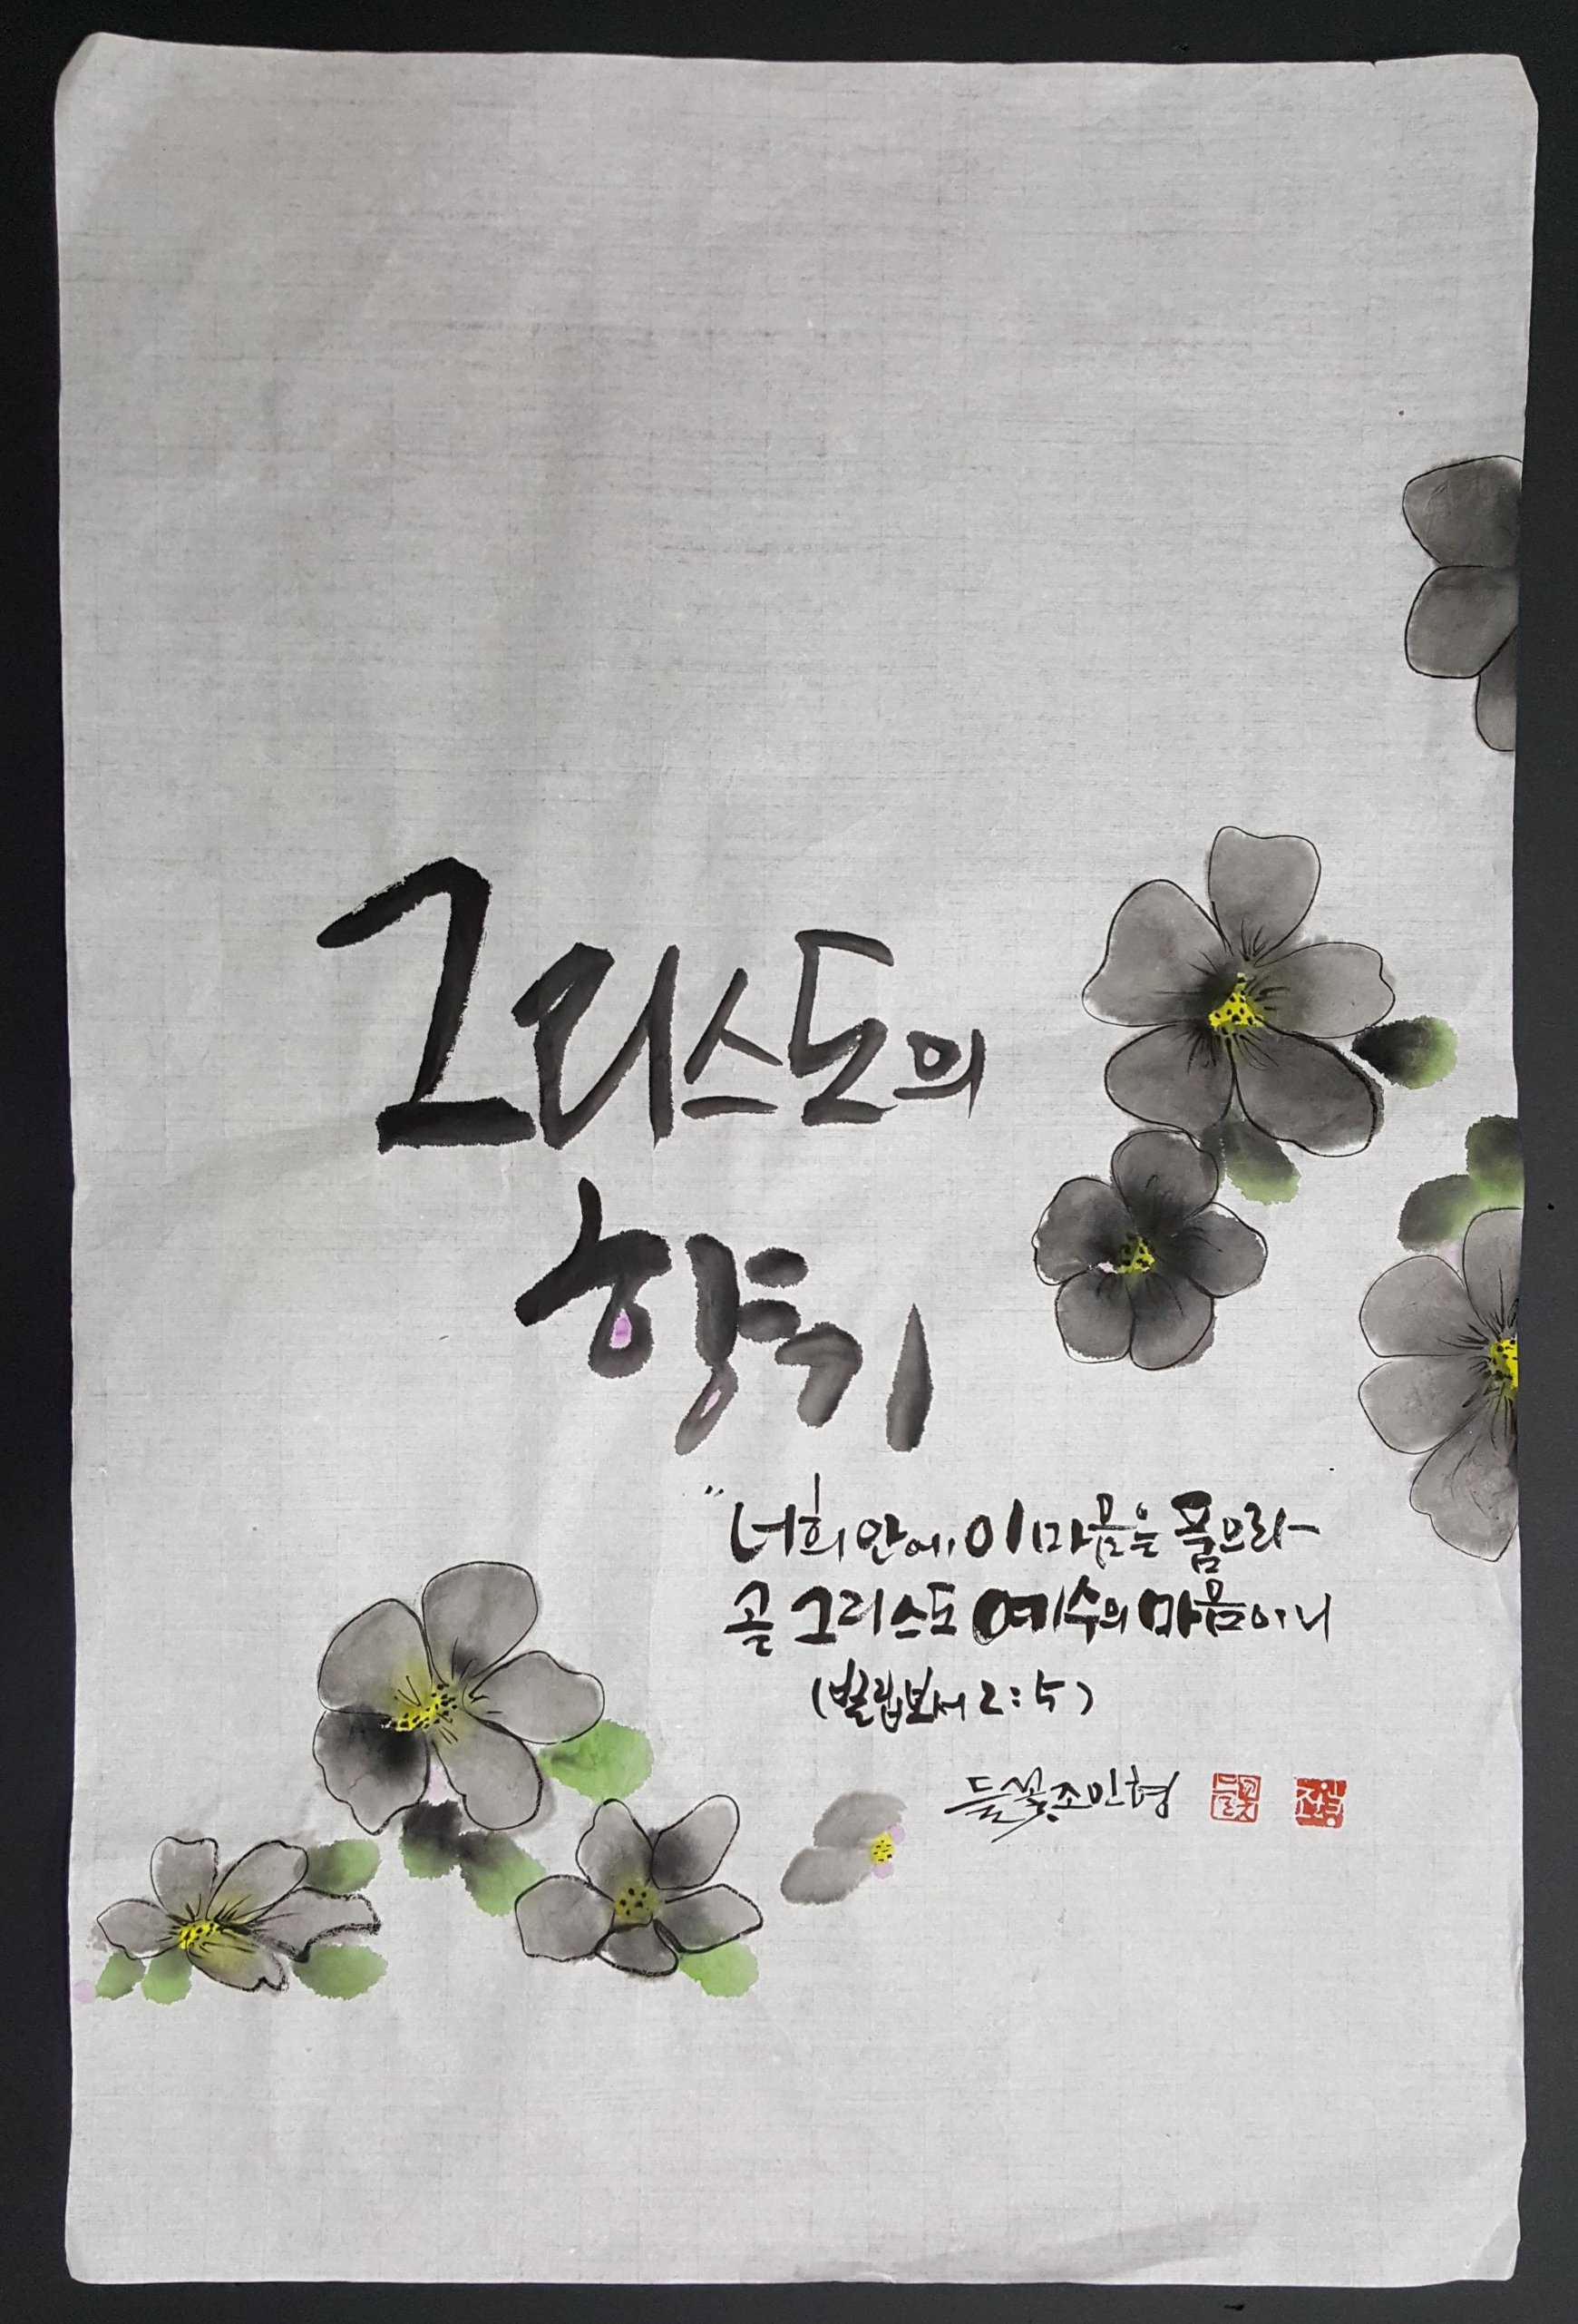 그리스도의
향기
"너희 안에 이 마음을 품으라
곧 그리스도 예수의 마음이니
(빌립보서 2:5)
들꽃 조민형
들꽃